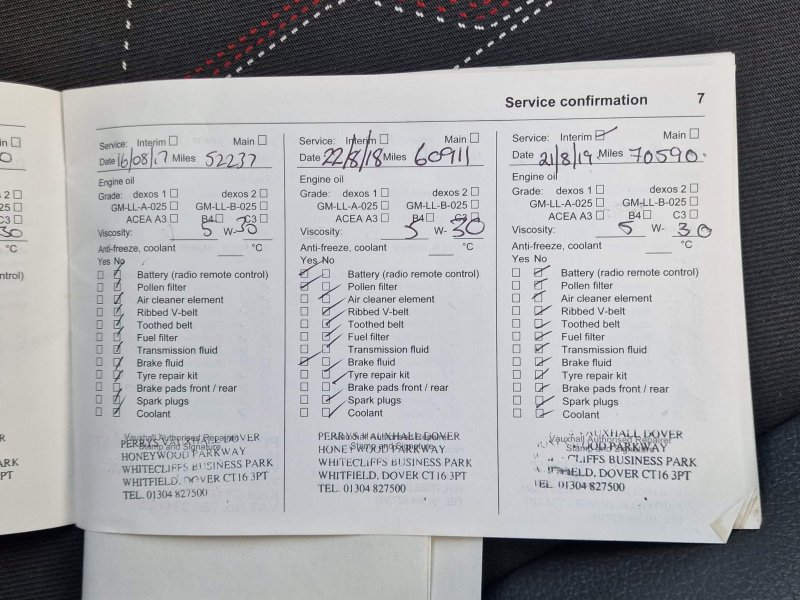 Service confirmation 7
Service: Interim ☐ Main ☐
Date 16/08/17 Miles 52237
Engine oil
Grade: dexos 1 ☐ dexos 2 ☐
GM-LL-A-025 ☐ GM-LL-B-025 ☐
ACEA A3 ☐ B4 ☐ C3 ☐
Viscosity: 5 W- 30
Anti-freeze, coolant °C
Yes No
Battery (radio remote control)
Pollen filter
Air cleaner element
Ribbed V-belt
Toothed belt
Fuel filter
Transmission fluid
Brake fluid
Tyre repair kit
Brake pads front / rear
Spark plugs
Coolant
Vauxhall Authorised Repairer
Stamp and Signature
PERRYS VAUXHALL DOVER
HONEYWOOD PARKWAY
WHITECLIFFS BUSINESS PARK
WHITFIELD, DOVER CT16 3PT
TEL. 01304 827500
Service: Interim ☐ Main ☐
Date 22/8/18 Miles 60911
Engine oil
Grade: dexos 1 ☐ dexos 2 ☐
GM-LL-A-025 ☐ GM-LL-B-025 ☐
ACEA A3 ☐ B4 ☐ C3 ☐
Viscosity: 5 W- 30
Anti-freeze, coolant °C
Yes No
Battery (radio remote control)
Pollen filter
Air cleaner element
Ribbed V-belt
Toothed belt
Fuel filter
Transmission fluid
Brake fluid
Tyre repair kit
Brake pads front / rear
Spark plugs
Coolant
Vauxhall Authorised Repairer
Stamp and Signature
PERRYS VAUXHALL DOVER
HONEYWOOD PARKWAY
WHITECLIFFS BUSINESS PARK
WHITFIELD, DOVER CT16 3PT
TEL. 01304 827500
Service: Interim ☑ Main ☐
Date 21/8/19. Miles 70590.
Engine oil
Grade: dexos 1 ☐ dexos 2 ☐
GM-LL-A-025 ☐ GM-LL-B-025 ☐
ACEA A3 ☐ B4 ☐ C3 ☐
Viscosity: 5 W- 30
Anti-freeze, coolant °C
Yes No
Battery (radio remote control)
Pollen filter
Air cleaner element
Ribbed V-belt
Toothed belt
Fuel filter
Transmission fluid
Brake fluid
Tyre repair kit
Brake pads front / rear
Spark plugs
Coolant
Vauxhall Authorised Repairer
Stamp and Signature
VAUXHALL DOVER
HONEYWOOD PARKWAY
CLIFFS BUSINESS PARK
WHITFIELD, DOVER CT16 3PT
TEL. 01304 827500